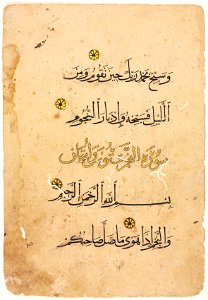 وسبح بحمد ربك حين تقوم ومن
الليل فسبحه وإدبار النجوم
سورة النجم ستون وآيتان
بسم الله الرحمن الرحيم
والنجم إذا هوى ما ضل صاحبكم